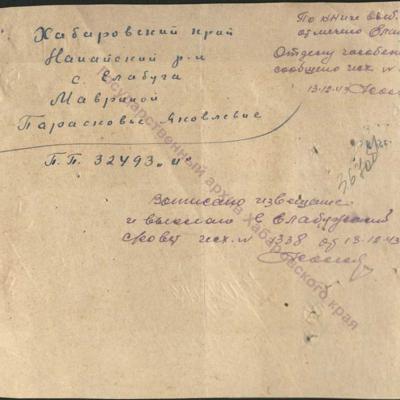 Хабаровский край
Нанайский р-н
с. Елабуга
Мавриной
Парасковье Яковлевне
П.П. 32493 "и"
По книге
отмечено
Отделу
сообщено исх. №
13-12-43
36700
Выписано извещение
и выслано в Елабужский
совет исх. № 1338 от 13-12-43
Государственный архив Хабаровского края